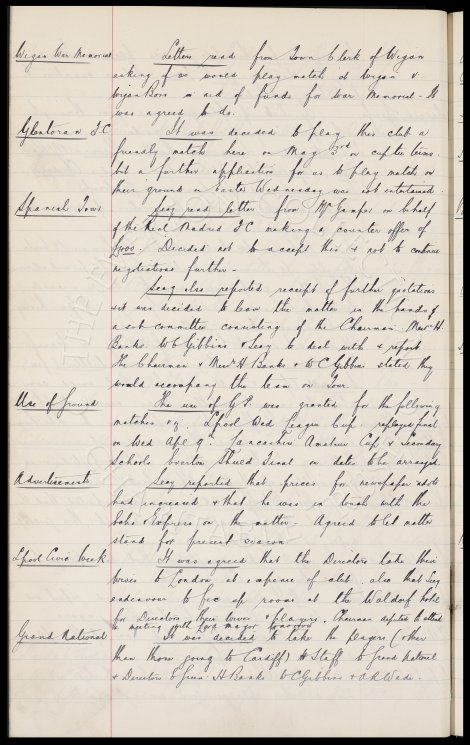 Wigan War Memorial Letters read from Town Clerk of Wigan
asking if we would play match at Wigan v
Wigan Boro in aid of funds for War Memorial - It
was agreed to do.
Glentoran F.C It was decided to play this club a
friendly match here on May 3rd on cup tie terms.
but a further application for us to play match on
their ground on Easter Wednesday was not entertained.
Spanish Tour Secy read letter from Mr Gamper on behalf
of the Real Madrid F.C making a counter offer of
Decided not to accept this & not to continue
negotiations further -
Secy also reported receipt of further quotations
& it was decided to leave the matter in the hands of
a sub committee consisting of the Chairman Messrs H.
Banks W C Gibbins & Secy to deal with & report
The Chairman & Messrs H Banks & W C Gibbins stated they
would accompany the team on Tour.
Use of Ground The use of G.P. was granted for the following
matches e.g. L'pool Wed League Cup replayed final
on Wed Apl 9th. Lancashire Amateur Cup & Secondary
Schools Everton Shield Final on dates to be arranged.
Advertisements Secy reported that prices for newspaper advts
had increased & that he was in touch with the
Echo & Express on the matter - Agreed to let matter
stand for present season
L'pool Civic Week It was agreed that the Directors take their
wives to London at expense of club. also that Secy
endeavour to fix up rooms at the Waldorf hotel
for Directors their wives & players. Chairman deputed to attend
to meeting with Lord Mayor tomorrow
Grand National It was decided to take the players (other
than those going to Cardiff) & Staff to Grand National
& Directors E Green H Banks W C Gibbins & A R Wade.